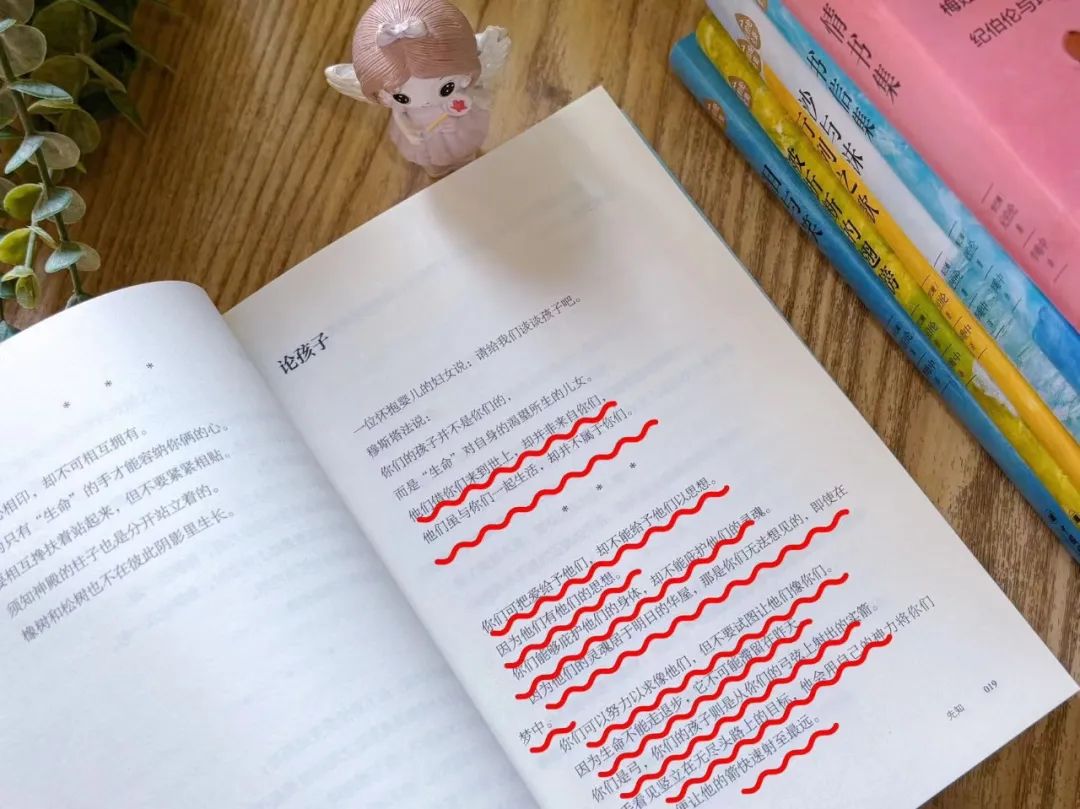 * * *
心相印，却不可相互拥有。
只有“生命”的手才能容纳你俩的心。
相互搀扶着站起来，但不要紧紧相贴。
须知神殿的柱子也是分开站立着的。
橡树和松树也不在彼此阴影里生长。
论孩子
一位怀抱婴儿的妇女说：请给我们谈谈孩子吧。
穆斯塔法说：
你们的孩子并不是你们的，
而是“生命”对自身的渴望所生的儿女。
他们借你们来到世上，却并非来自你们，
他们虽与你们一起生活，却并不属于你们。
* * *
你们可把爱给予他们，却不能给予他们以思想。
因为他们有他们的思想。
你们能够庇护他们的身体，却不能庇护他们的灵魂。
因为他们的灵魂居于明日的华屋，那是你们无法想见的，即使在
梦中。
你们可以努力以求像他们，但不要试图让他们像你们。
因为生命不能走退步，它不可能滞留在昨天。
你们是弓，你们的孩子则是从你们的弓弦上射出的实箭。
看见竖立在无尽头路上的目标，他会用自己的神力将你们
便让他的箭快速射至最远。
019
先知
情书集
书信集
沙与沫
之歌
的翅膀
泪与笑
纪伯伦与